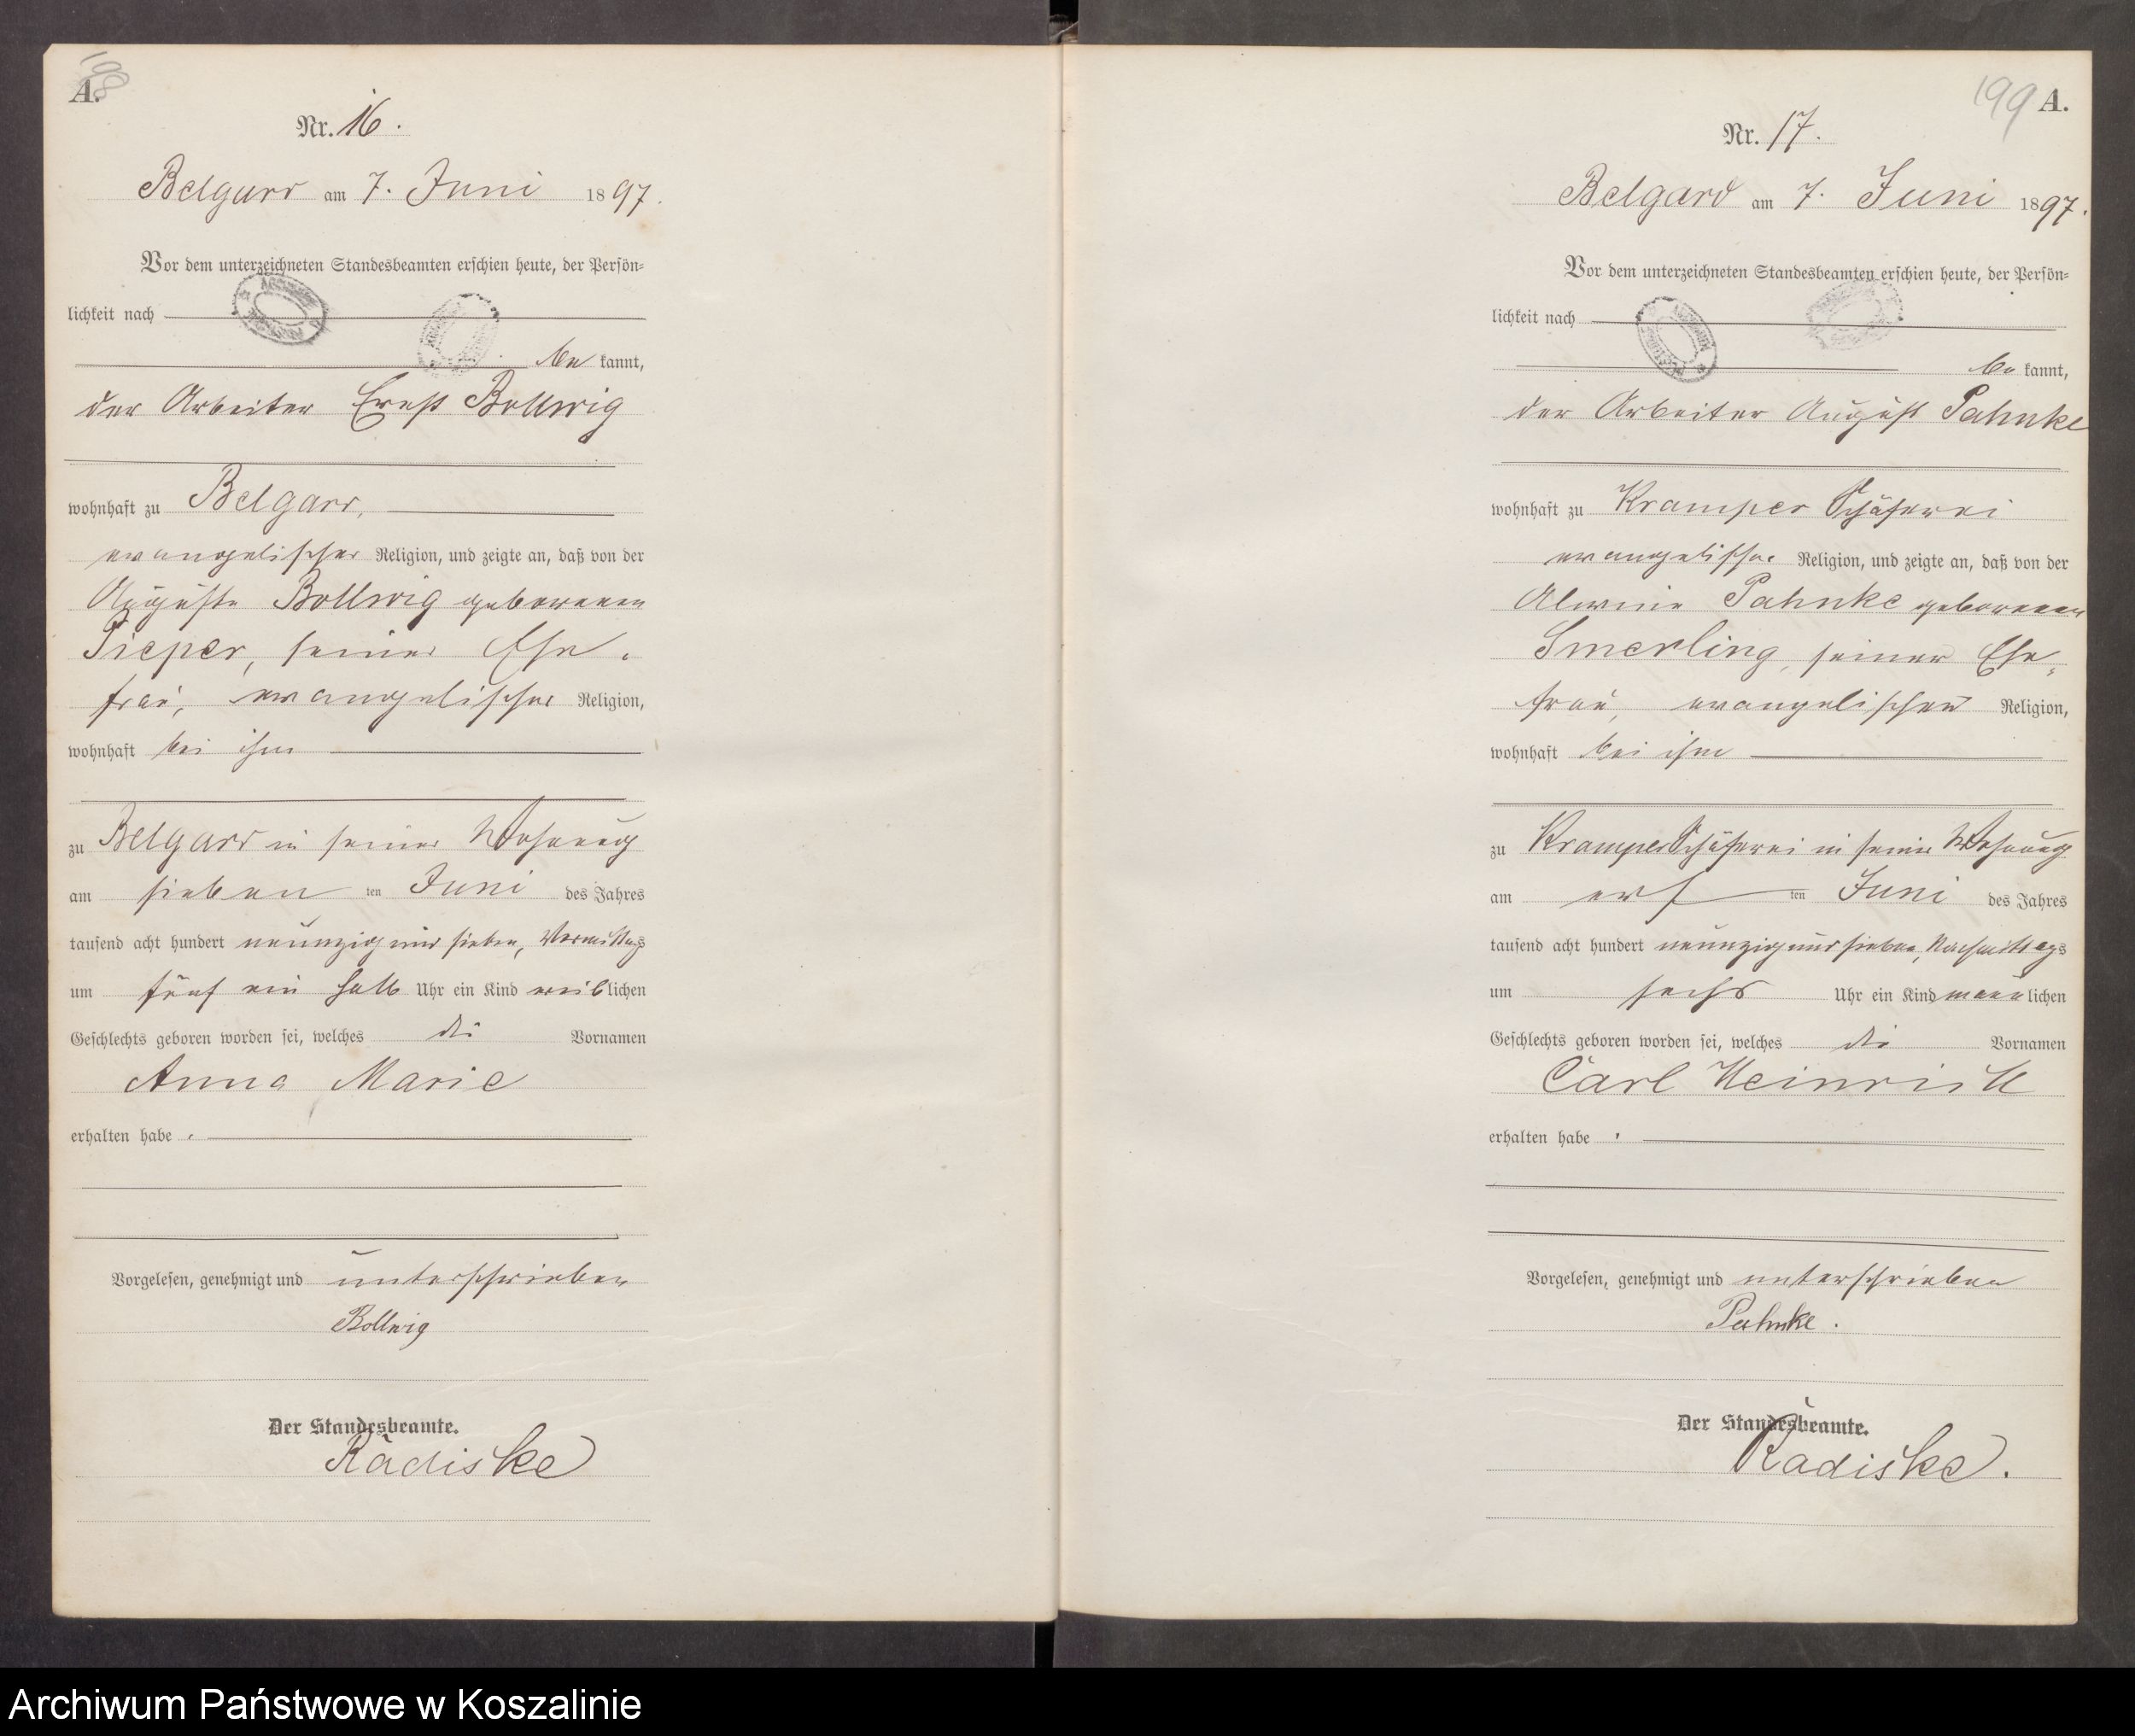 198
A.
Nr. 16.
Belgard am 7. Juni 1897.
Vor dem unterzeichneten Standesbeamten erschien heute, der Persön=
lichkeit nach
be kannt,
der Arbeiter Ernst Bollwig
wohnhaft zu Belgard,
evangelischer Religion, und zeigte an, daß von der
Auguste Bollwig geborenen
Pieper, seiner Ehe-
frau, evangelischer Religion,
wohnhaft bei ihm
zu Belgard in seiner Wohnung
am sieben ten Juni des Jahres
tausend acht hundert neunzig und sieben, Vormittags
um fünf ein halb Uhr ein Kind weiblichen
Geschlechts geboren worden sei, welches die Vornamen
Anna Marie
erhalten habe.
Vorgelesen, genehmigt und unterschrieben
Bollwig
Der Standesbeamte.
Radiske
199 A.
Nr. 17.
Belgard am 7. Juni 1897.
Vor dem unterzeichneten Standesbeamten erschien heute, der Persön=
lichkeit nach
be kannt,
der Arbeiter August Pahnke
wohnhaft zu Kramper Schäferei
evangelischer Religion, und zeigte an, daß von der
Alwine Pahnke geborenen
Smerling, seiner Ehe-
frau, evangelischer Religion,
wohnhaft bei ihm
zu Kramper Schäferei in seiner Wohnung
am ers ten Juni des Jahres
tausend acht hundert neunzig und sieben, Nachmittags
um sechs Uhr ein Kind männlichen
Geschlechts geboren worden sei, welches die Vornamen
Carl Heinrich
erhalten habe.
Vorgelesen, genehmigt und unterschrieben
Pahnke.
Der Standesbeamte.
Radiske.
Archiwum Państwowe w Koszalinie